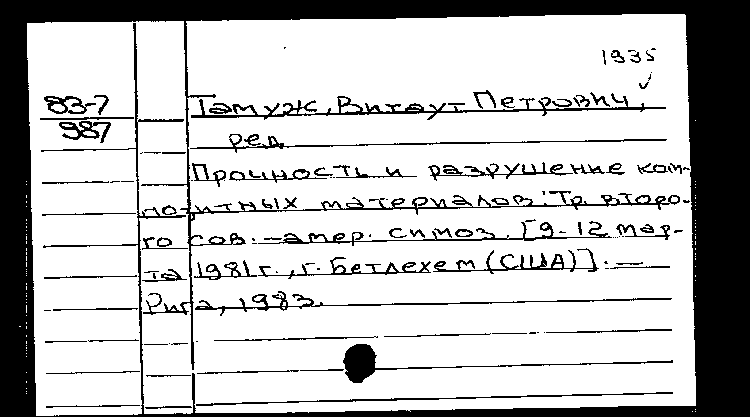 1935
83-7
987
Тамуж, Витаут Петрович,
ред
Прочность и разрушение ком-
позитных материалов: Тр. второ-
го сов.-амер. симпоз. [9-12 мар-
та 1981 г., г. Бетлехем (США)]. —
Рига, 1983.